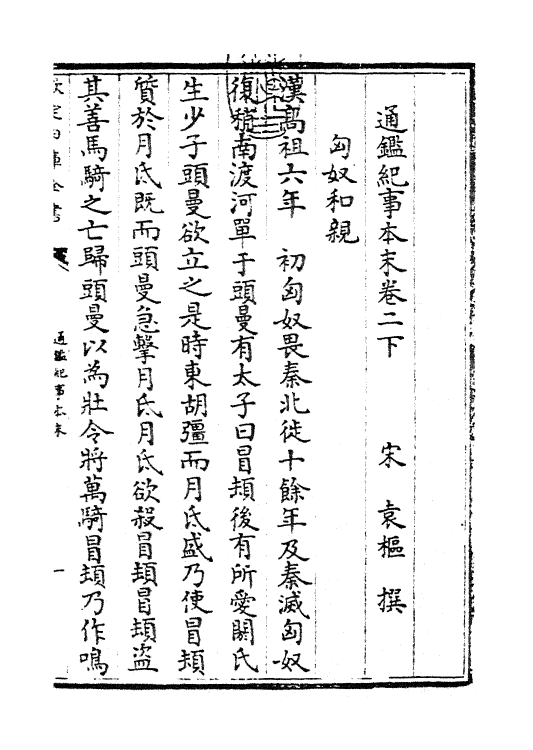 通鑑紀事本末卷二下 宋 袁樞 撰
匈奴和親
漢髙祖六年 初匈奴畏秦北徙十餘年及秦滅匈奴
復稍南渡河單于頭曼有太子曰冒頓後有所愛閼氏
生少子頭曼欲立之是時東胡彊而月氐盛乃使冒頓
質於月氐既而頭曼急擊月氐月氐欲殺冒頓冒頓盜
其善馬騎之亡歸頭曼以為壯令將萬騎冒頓乃作鳴
欽定四庫全書
通鑑紀事本末
一